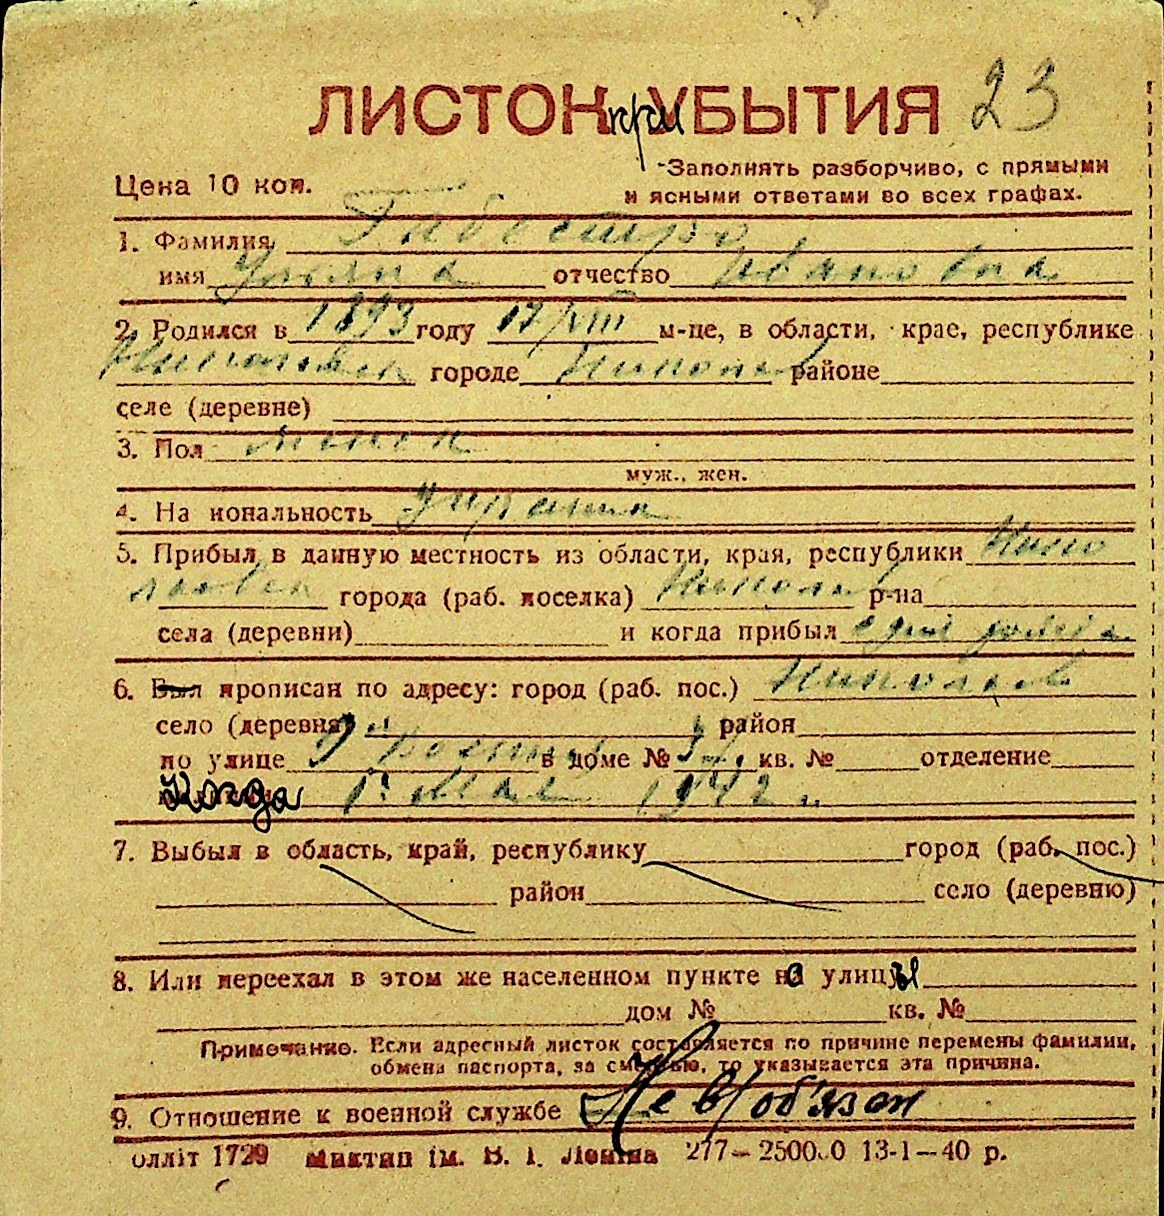 ЛИСТОК при УБЫТИЯ 23
Цена 10 коп.
Заполнять разборчиво, с прямыми
и ясными ответами во всех графах.
1. Фамилия
имя Ульяна отчество Ивановна
2. Родился в 1893 году 17/VIII м-це, в области, крае, республике
городе Николаев районе
селе (деревне)
3. Пол
муж., жен.
4. На иональность
5. Прибыл в данную местность из области, края, республики Нико
лаевск города (раб. поселка) Николаев р-на
села (деревни) и когда прибыл
6. Был прописан по адресу: город (раб. пос.) Николаев
село (деревня) район
по улице в доме № кв. № отделение
Когда 1 мая 1942 г.
7. Выбыл в область, край, республику город (раб. пос.)
район село (деревню)
8. Или переехал в этом же населенном пункте на улицы
дом № кв. №
Примечание. Если адресный листок составляется по причине перемены фамилии,
обмена паспорта, за смертью, то указывается эта причина.
9. Отношение к военной службе Не в/обязан
олліт 1729 Миктип ім. В. І. Леніна 277—250000 13-1—40 р.